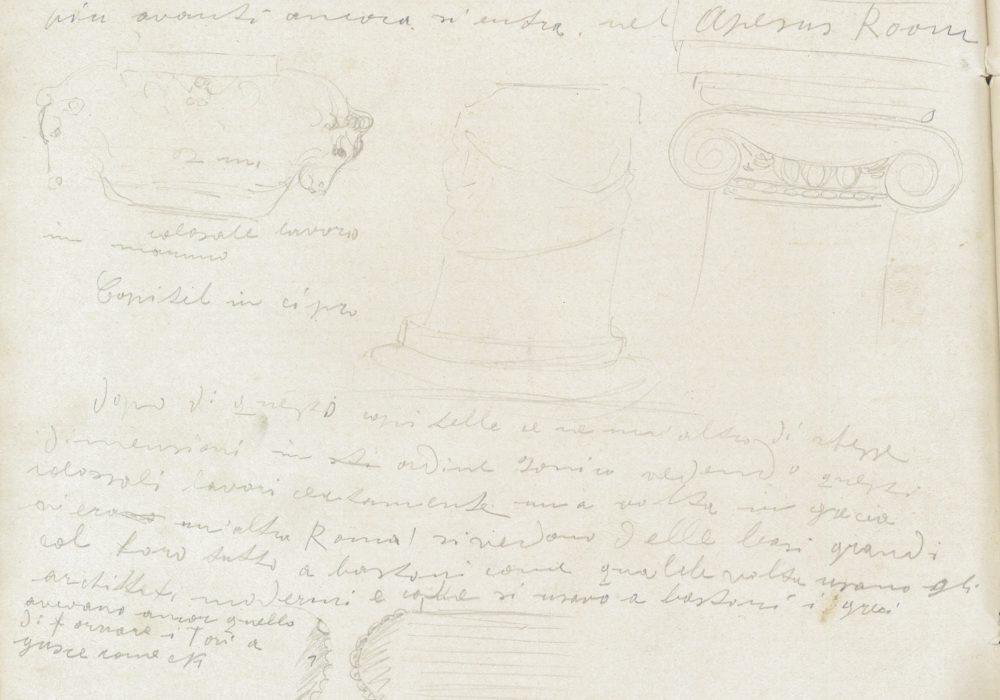 più avanti ancora si entra nel Apesus Room
2 m.
colosale lavoro
in marmo
Capitel in cipro
dopo di questo capitelle ce ne un altro di stesse
dimensioni in ordine Jonico vedendo questi
colossali lavori certamente una volta in grecia
si era un'altra Roma! si vedono delle basi grandi
col toro tutto a bastoni come qualche volta usano gli
architteti moderni e si usava a bastoni i greci
avevano ancor quello
di tornare i Tori a
gusce come